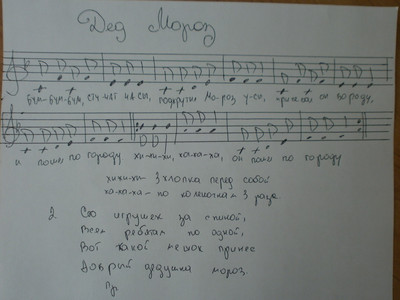 Дед Мороз
бум-бум-бум, стучат часы, подкрутил Мороз усы, причесал он бороду,
и пошёл по городу хи-хи-хи, ха-ха-ха, он пошёл по городу
хихихи- 3 хлопка перед собой
ха-ха-ха - по коленочкам 3 раза
2. Сто игрушек за спиной,
Всем ребятам по одной,
Вот какой мешок принёс
Добрый дедушка мороз.
Пр